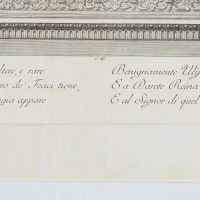 ltero, e rare
ro de' Feaci tiene,
gia appare.
Benignamente Ulis
E a Darete Reina
E al Signor di quel